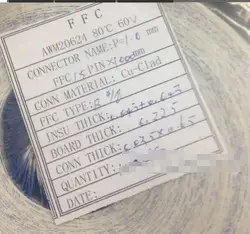 FFC
AWM20624 80℃ 60V
CONNECTOR NAME: P=1.0 mm
FFC 15 PIN × mm
CONN MATERIAL: Cu-Clad
FFC TYPE:
INSU THICK:
BOARD THICK: 0.225
CONN THICK: 0.035×0.65
QUANTITY:
DATE: